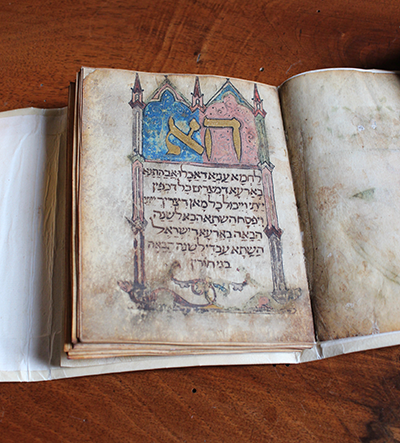 הא
לחמא עניא דאכלו אבהתנא
בארעא דמצרים כל דכפין
ייתי וייכול כל מאן דצריך ייתי
ויפסח השתא הכא לשנה
הבאה בארעא דישראל
השתא עבדי לשנה הבאה
בני חורין